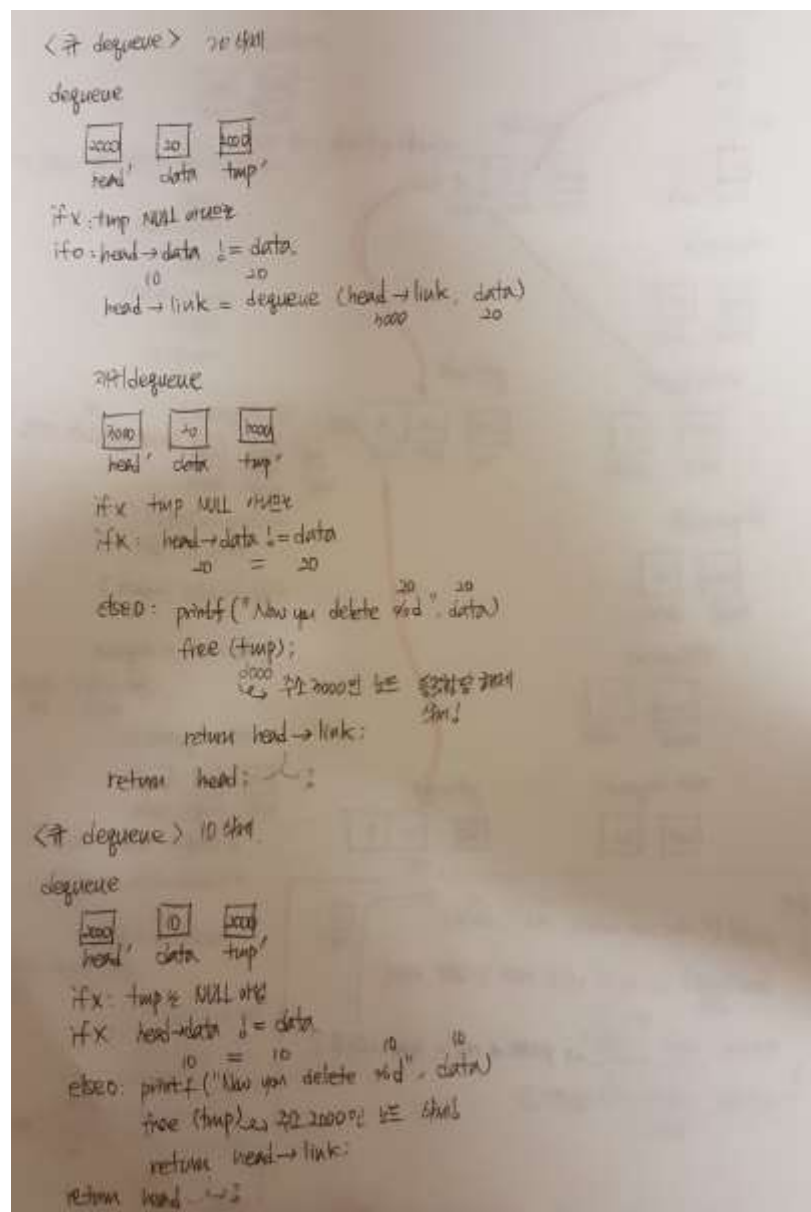 <큐 dequeue> 20 삭제
dequeue
2000 20 2000
head' data tmp'
if x : tmp NULL 아니므로
if o : head→data != data
10 20
head→link = dequeue (head→link, data)
3000 20
재귀 dequeue
3000 20 3000
head' data tmp'
if x tmp NULL 아니므로
if x : head→data != data
20 = 20
20 20
else o : printf("Now you delete %d", data)
free (tmp);
3000 주소 3000인 노드 해제
삭제!
return head→link;
return head;
<큐 dequeue> 10 삭제
dequeue
2000 10 2000
head' data tmp'
if x : tmp는 NULL 아님
if x head→data != data
10 = 10 10 10
else o : printf("Now you delete %d", data)
free (tmp) 주소 2000인 노드 삭제
return head→link;
return head